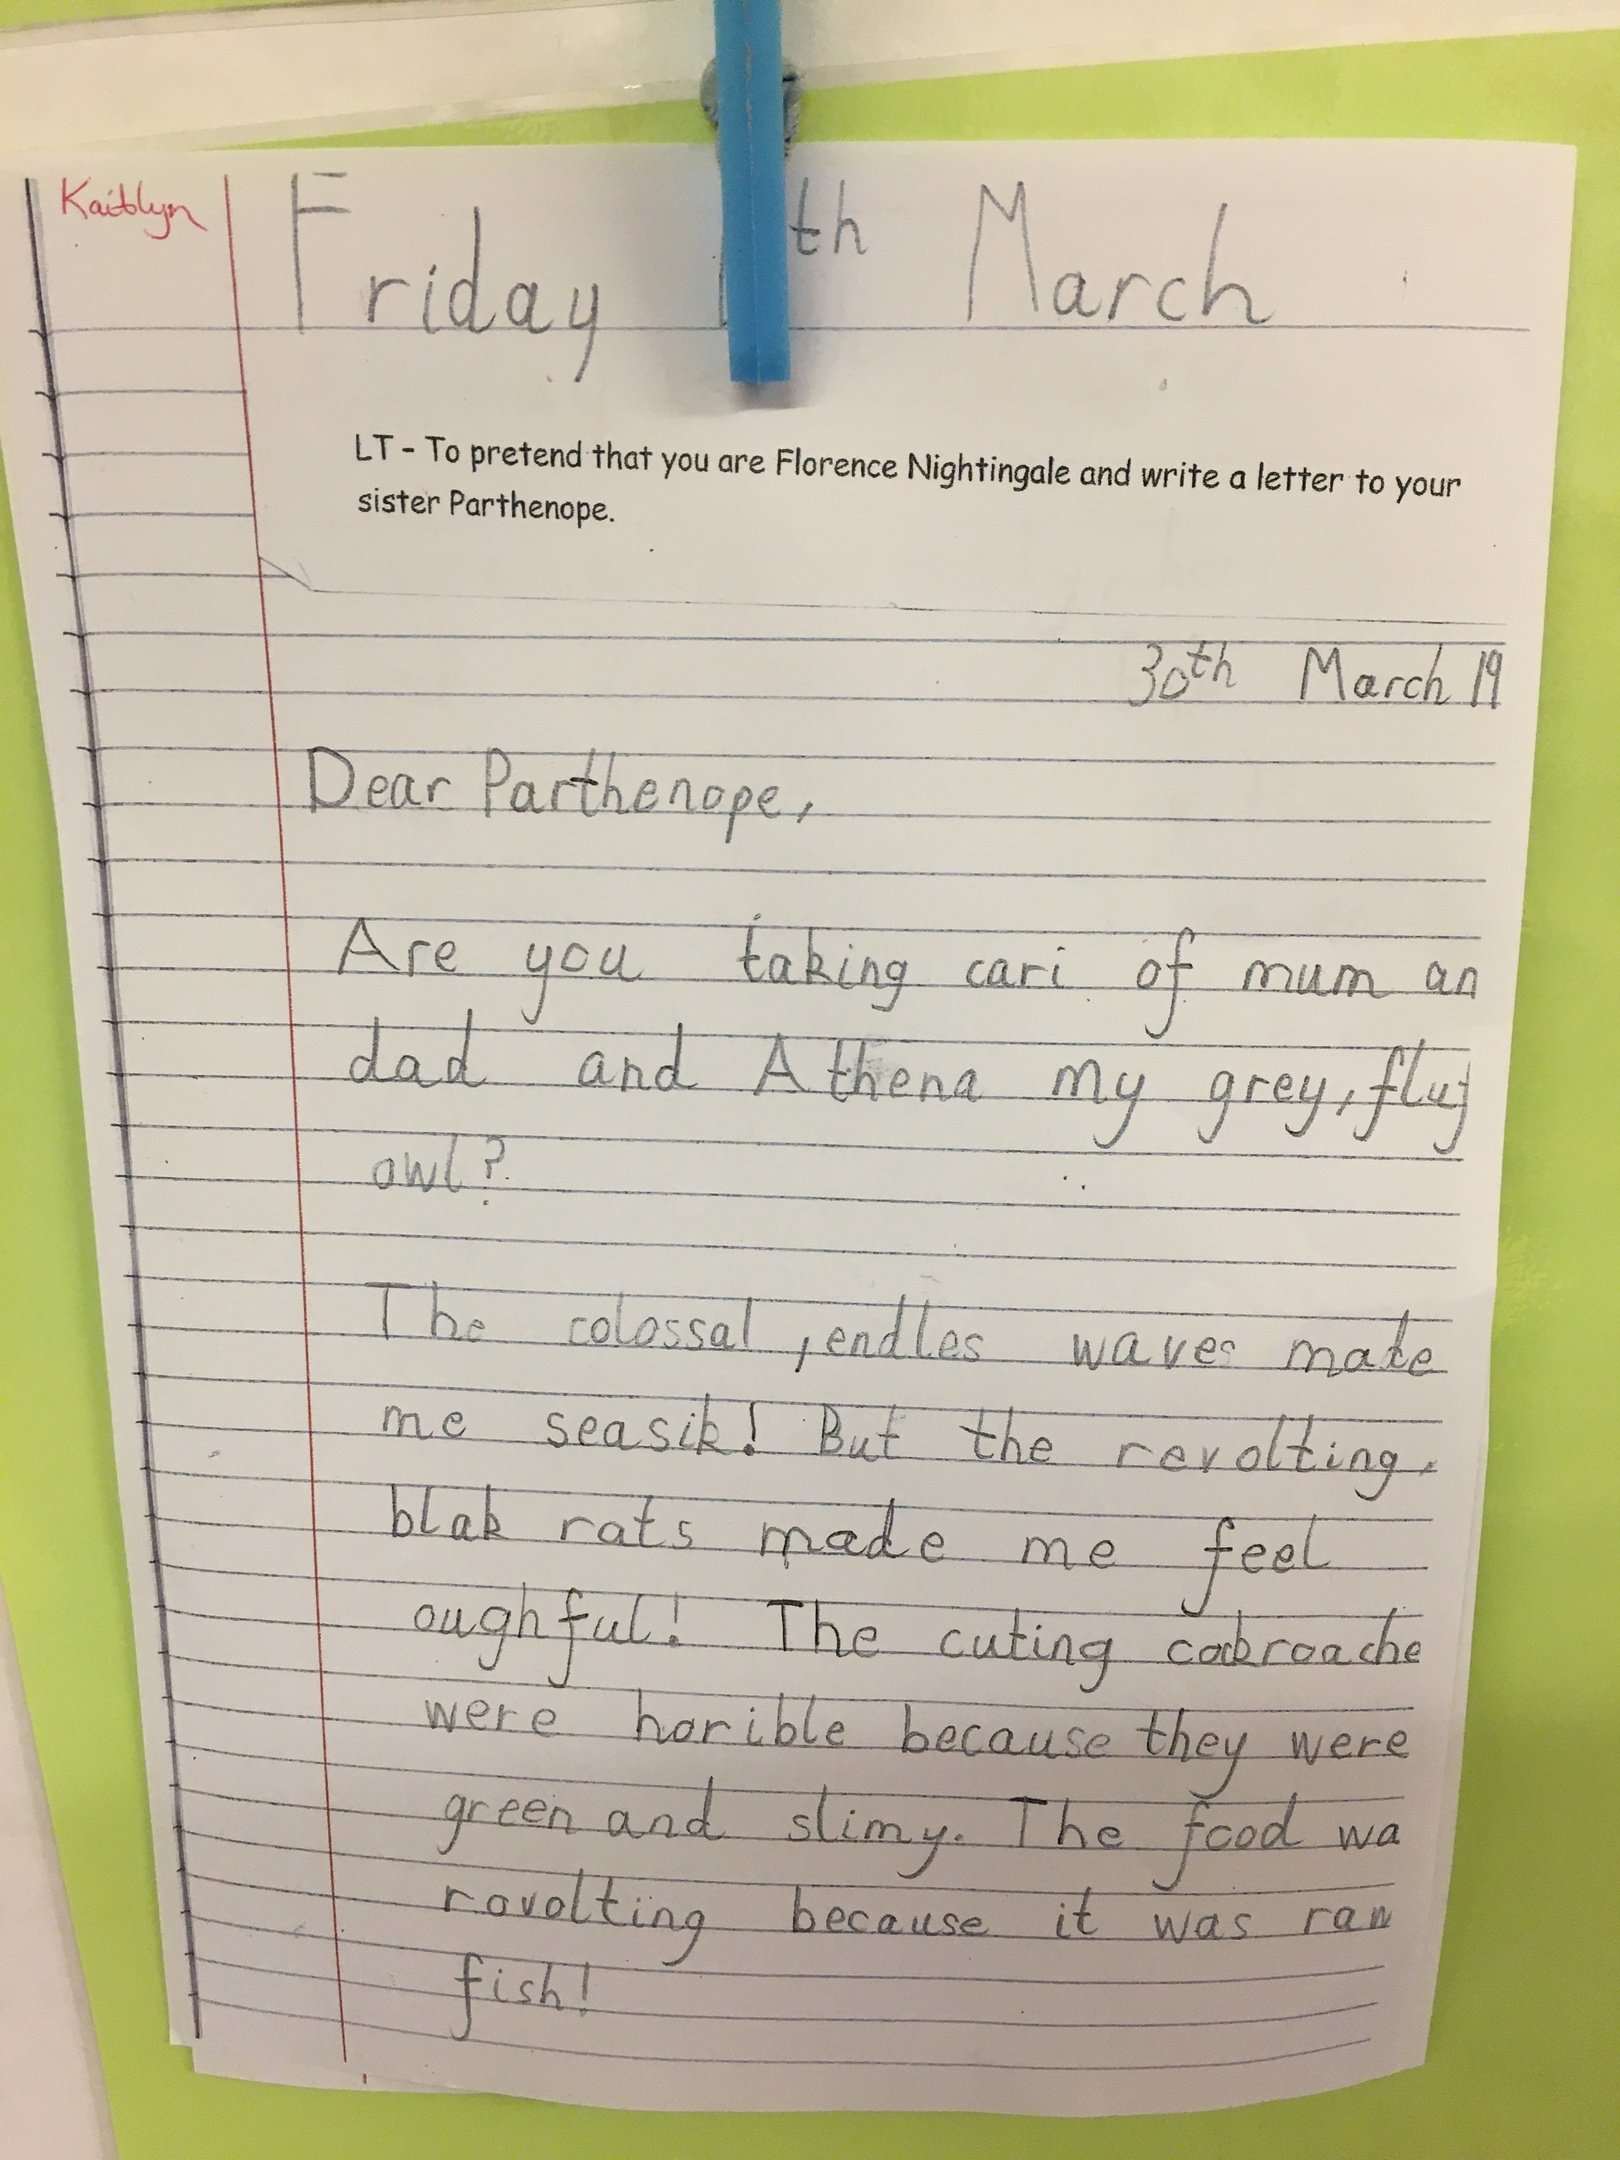 Kaitlyn
Friday th March
LT - To pretend that you are Florence Nightingale and write a letter to your
sister Parthenope.
30th March 19
Dear Parthenope,
Are you taking cari of mum an
dad and Athena my grey, fluf
owl?
The colossal, endles waves made
me seasik! But the revolting,
blak rats made me feel
oughful! The cuting cockroache
were horible because they were
green and slimy. The food wa
rovolting because it was raw
fish!